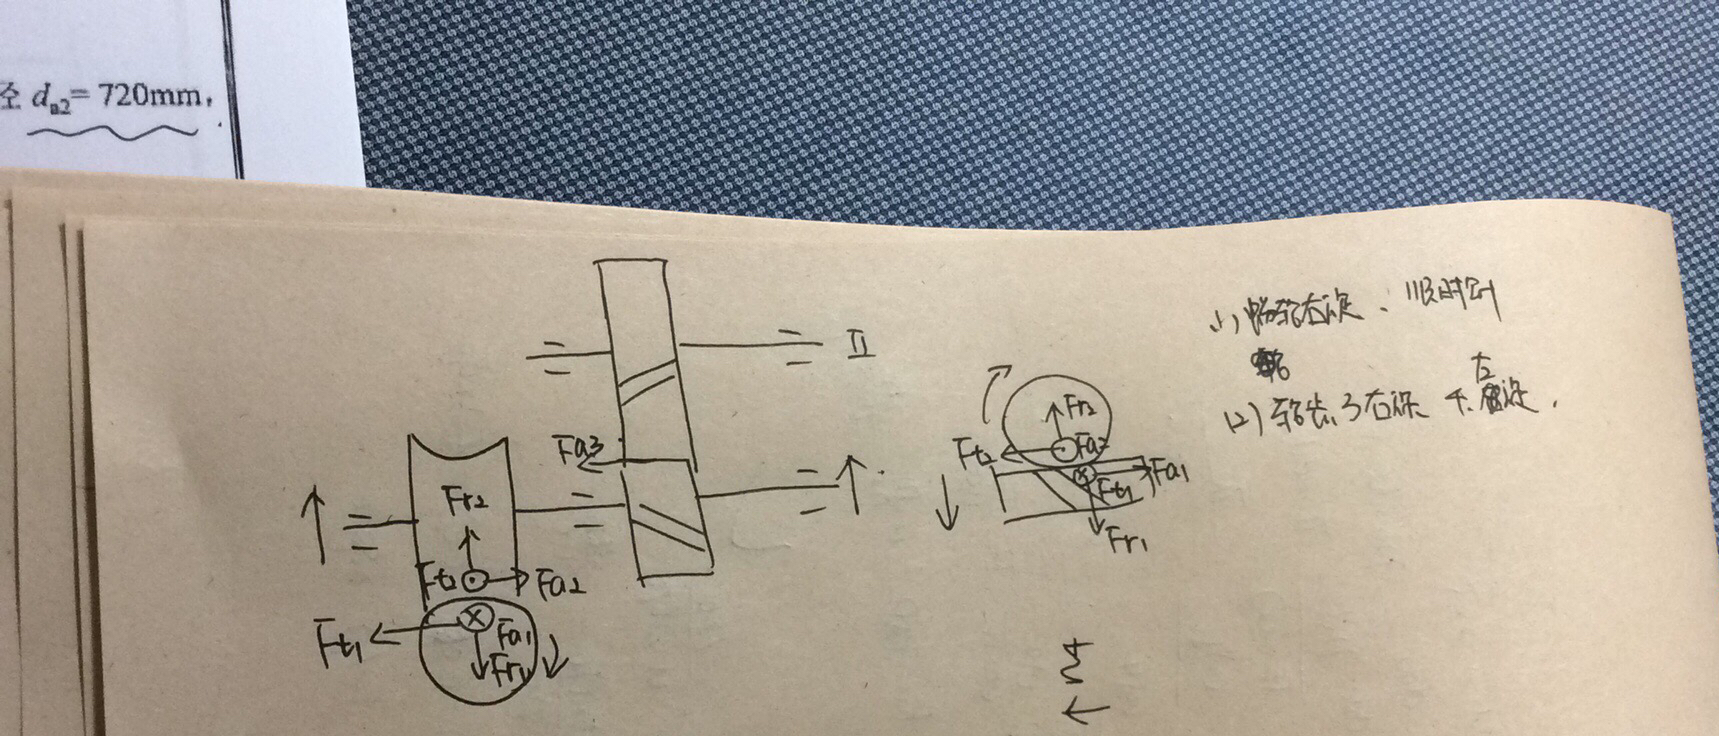 径 da2= 720mm,
II
Fa3
Fr2
Ft2 Fa2
Ft1 Fa1
Fr1
Fr2
Ft2 Fa2
Fa1
Ft1
Fr1
(1) 蜗轮右旋、顺时针
左
(2) 轮齿3右旋 4左旋.